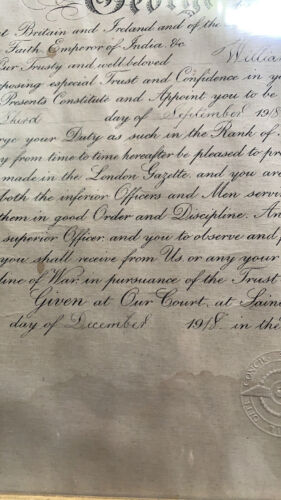 George
t Britain and Ireland and of the
Faith, Emperor of India, &c.
Our Trusty and well beloved William
posing especial Trust and Confidence in yo
Presents Constitute and Appoint you to be
Third day of September 1918
rge your Duty as such in the Rank of
y from time to time hereafter be pleased to pr
made in the London Gazette, and you are
both the inferior Officers and Men serv
them in good Order and Discipline. An
superior Officer, and you to observe and
you shall receive from Us, or any your
line of War, in pursuance of the Trust
Given at Our Court, at Sain
day of December 1918 in the